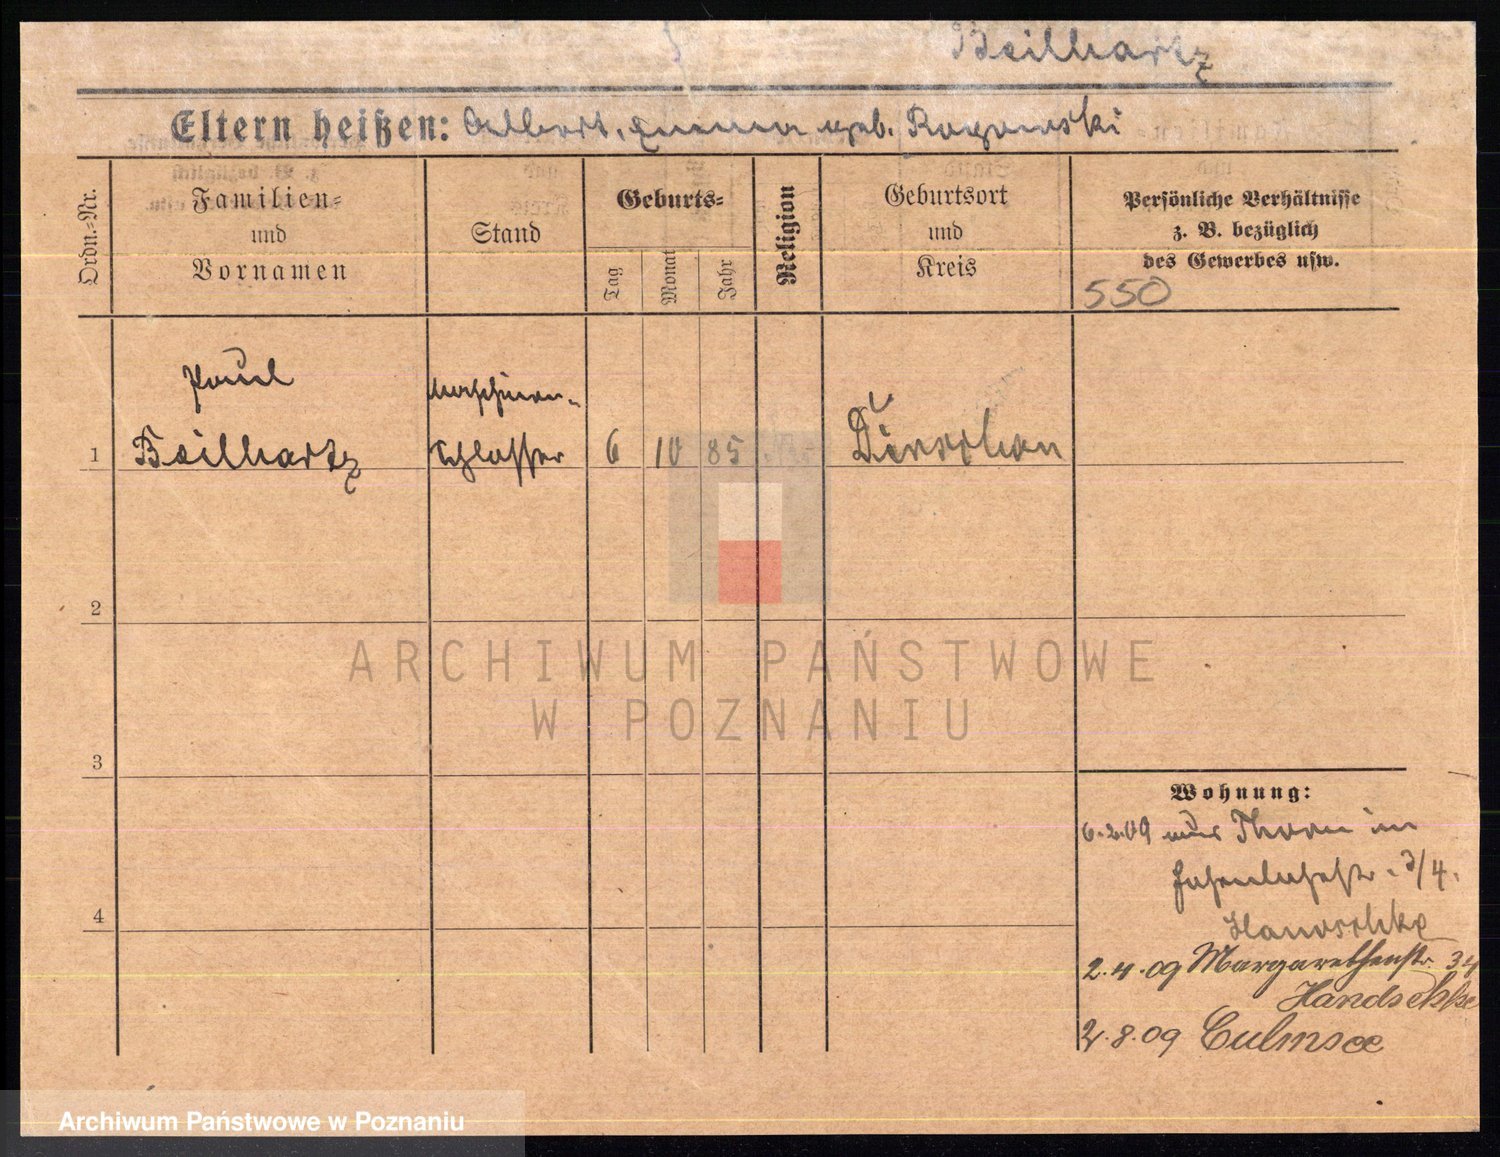 Beilhartz
Eltern heißen: Albert, Emma geb. Rogowski
Ordn.-Nr.
Familien-
und
Vornamen
Stand
Geburts-
Tag
Monat
Jahr
Religion
Geburtsort
und
Kreis
Persönliche Verhältnisse
z. B. bezüglich
des Gewerbes usw.
550
Paul
Maschinen-
1 Beilhartz Schlosser 6 10 85 Dirschau
2
3
4
Wohnung:
6.2.09 aus Thorn in
3/4.
2.4.09 Margarethenstr. 34
Handschke
2.8.09 Culmsee
ARCHIWUM PAŃSTWOWE
W POZNANIU
Archiwum Państwowe w Poznaniu